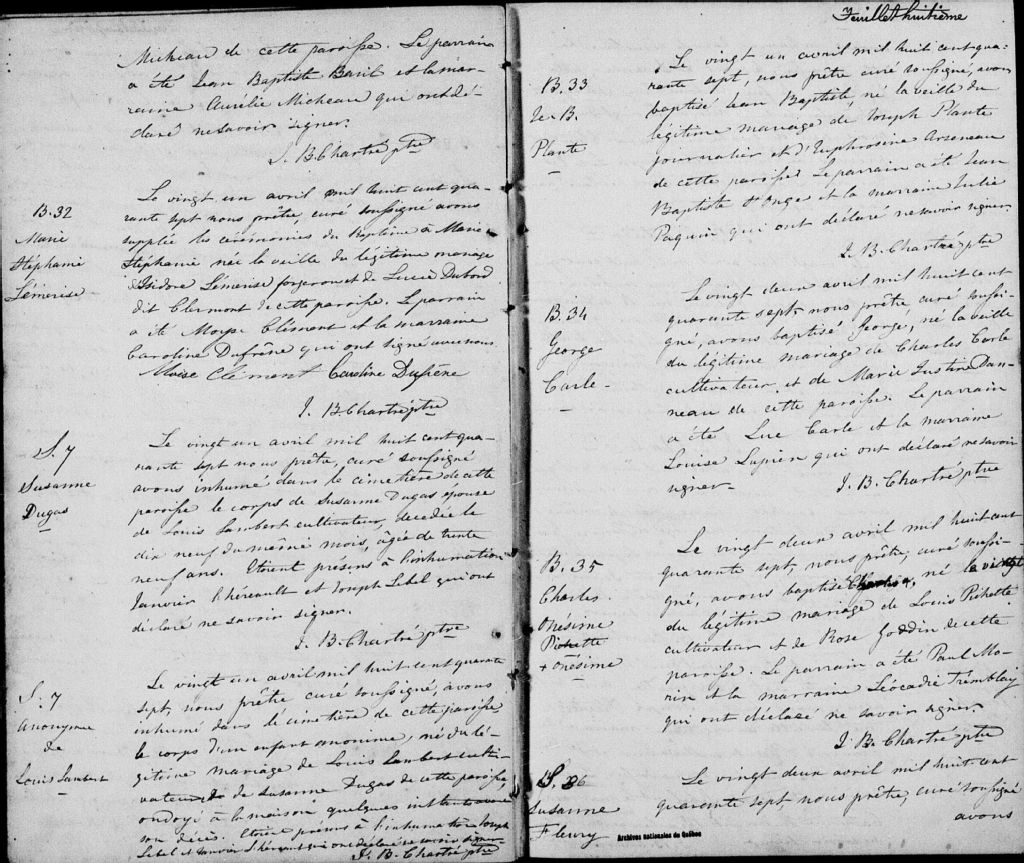 Micheau de cette paroisse. Le parrain
a été Jean Baptiste Baril et la mar-
raine Aurélie Micheau qui ont dé-
claré ne savoir signer.
J. B. Chartré ptre
B. 32
Marie
Stéphanie
Lémerise
Le vingt un avril mil huit cent qua-
rante sept nous prêtre, curé soussigné avons
supplée les cérémonies du Baptême à Marie
Stéphanie née la veille du légitime mariage
d'Isidore Lémerise forgeron et de Lucie Dubord
dit Clermont de cette paroisse. Le parrain
a été Moyse Clément et la marraine
Caroline Dufrêne qui ont signé avec nous.
Moïse Clément Caroline Dufrene
J. B. Chartré ptre
S. 7
Susanne
Dugas
Le vingt un avril mil huit cent qua-
rante sept nous prêtre, curé soussigné
avons inhumé dans le cimetière de cette
paroisse le corps de Susanne Dugas epouse
de Louis Lambert cultivateur, decedée le
dix neuf du même mois, âgée de trente
neuf ans. Etoient présens à l'inhumation
Janvier Lhéreault et Joseph Lebel qui ont
déclaré ne savoir signer.
J. B. Chartré ptre
S. 7
Anonyme
de
Louis Lambert
Le vingt un avril mil huit cent quarante
sept, nous prêtre curé soussigné, avons
inhumé dans le cimetière de cette paroisse
le corps d'un enfant anonime, né du lé-
gitime mariage de Louis Lambert culti-
vateur de Susanne Dugas de cette paroisse,
ondoyé à la maison quelques instants avant
son décès. Etoient présens à l'inhumation Joseph
Lebel et Janvier Lhéreault qui ont déclaré ne savoir signer
J. B. Chartré ptre
Feuillet huitième
B. 33
J. B.
Plante
Le vingt un avril mil huit cent qua-
rante sept, nous prêtre curé soussigné, avons
baptisé Jean Baptiste, né la veille du
légitime mariage de Joseph Plante
journalier et d'Euphrosine Arseneau
de cette paroisse. Le parrain a été Jean
Baptiste St Onge et la marraine Julie
Paquin qui ont déclaré ne savoir signer.
J. B. Chartré ptre
B. 34
George
Carle
Le vingt deux avril mil huit cent
quarante sept, nous prêtre curé soussi-
gné, avons baptisé George, né la veille
du légitime mariage de Charles Carle
cultivateur, et de Marie Justine Dan-
neau de cette paroisse. Le parrain
a été Luc Carle et la marraine
Louise Lupien qui ont déclaré ne savoir
signer
J. B. Chartré ptre
B. 35
Charles
Onesime
Pichette
+ Onésime
Le vingt deux avril mil huit cent
quarante sept, nous prêtre, curé soussi-
gné, avons baptisé Charles, né la
du légitime mariage de Louis Pichette
cultivateur et de Rose Goddin de cette
paroisse. Le parrain a été Paul Mo-
rin et la marraine Léocadie Tremblay
qui ont déclaré ne savoir signer.
J. B. Chartré ptre
S. 6
Susanne
Fleury
Le vingt deux avril mil huit cent
quarante sept nous prêtre, curé soussigné
avons
Archives nationales du Québec